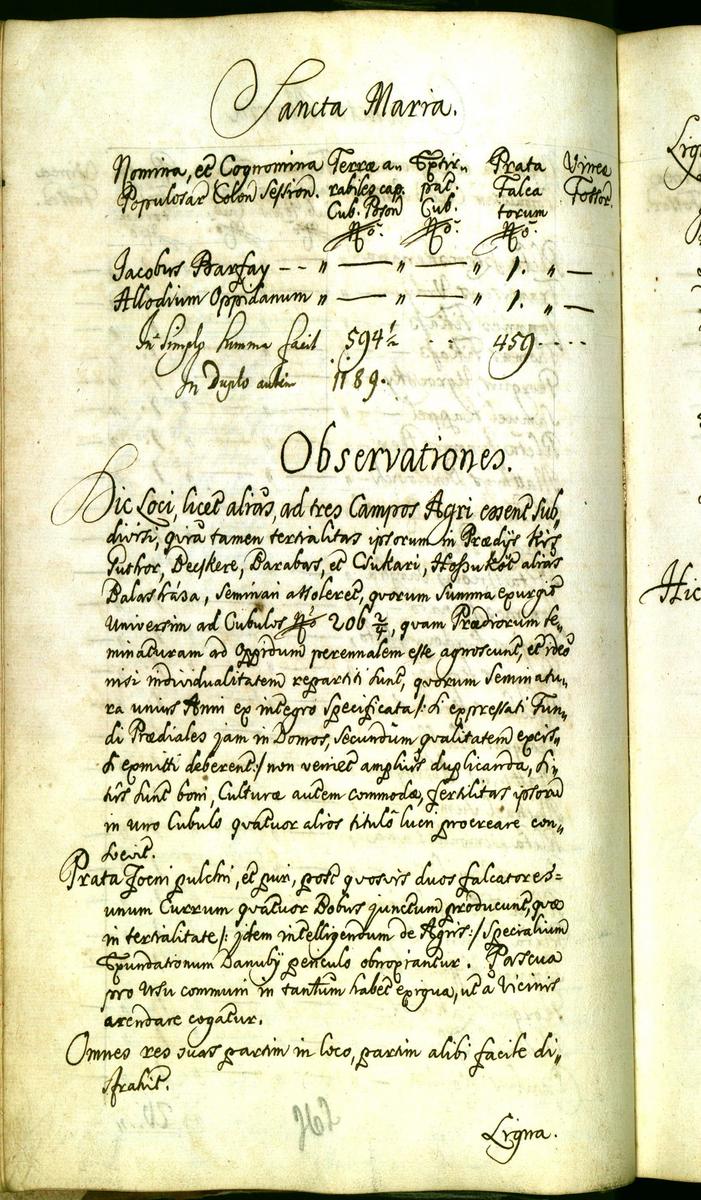 Sancta Maria.
Nomina, et Cognomina Terræ a„ Prata Vinea
Populosar Colon Session. rabiles cap. Falca Fossor.
Cub. Poson Cub. torum
Nro. Nro. Nro.
Jacobus Barfay -- „ — „ — „ 1. „ —
Allodium Oppidanum „ — „ — „ 1. „ —
In Simplo Summa facit 594 ½ . . . 459. . . .
In Duplo autem 1189.
Observationes.
Hic Loci, licet alias, ad tres Campos Agri essent sub„
divisi, quia tamen tertialitas ipsorum in Prædijs
Guthor, Decskere, Barabas, et Csukari, Hossukót alias
Balashása, seminari assoleret, quorum summa exurgit
universim ad Cubulos Nro 206 2/4, quam Prædiorum se„
minaturam ad Oppidum perennalem esse agnoscunt, et ideo
nisi individualitatem repartiti sunt, quorum Seminatu„
ra unius Anni ex integro specificata /: si expressati Fun„
di Prædiales jam in Domos, secundum qvalitatem excis„
si exmitti deberent :/ non veniet amplius duplicanda, Si„
tus sunt boni, Culturæ autem commodæ, fertilitas ipsorū
in uno Cubulo qvatuor alios titulō lucri procreare con„
svevit.
Prata Foeni pulchri, et puri, post quosvis duos falcatores =
unum Currum qvatuor Bobus junctum producunt, quæ
in tertialitate /: idem intelligendum de Agris :/ specialium
Exundationum Danubij periculo Pascua
pro Usu communi in tantum habet exigua, ut a Vicinis
arendare cogatur.
Omnes res suas partim in loco, partim alibi facile di„
strahit.
262
Ligna.